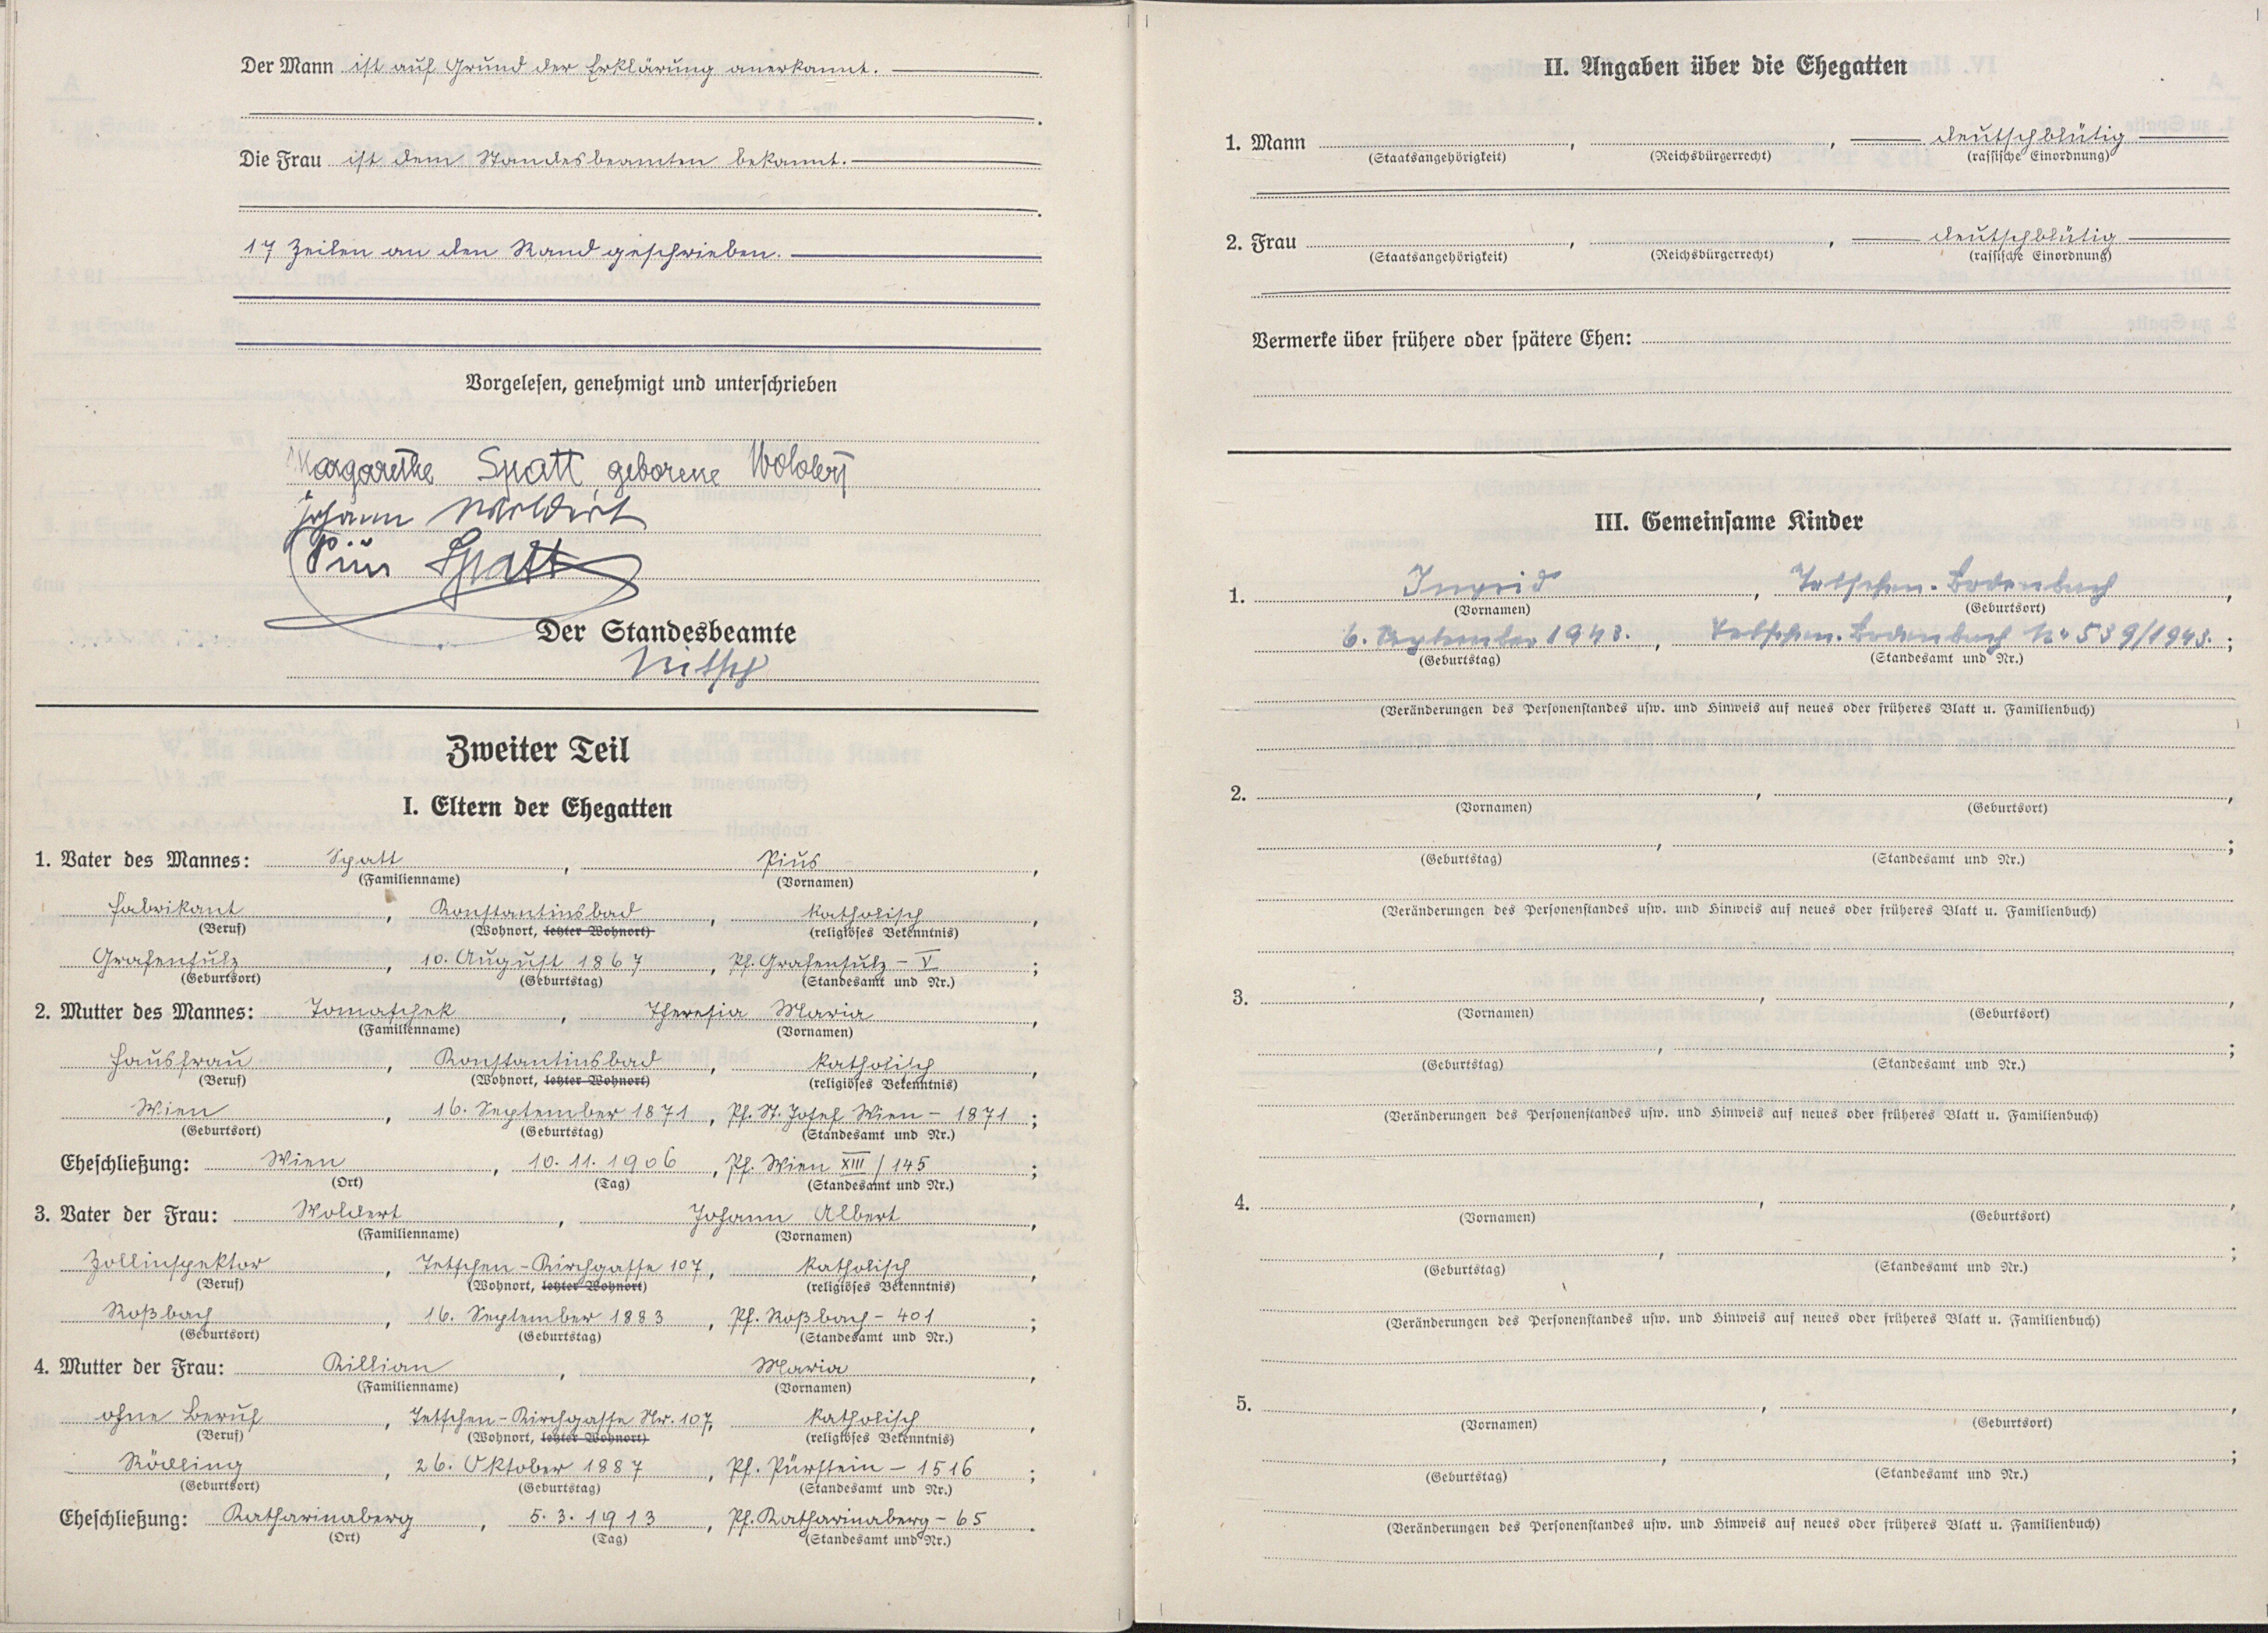 Der Mann ist auf Grund der Erklärung anerkannt.
Die Frau ist dem Standesbeamten bekannt.
17 Zeilen an den Rand geschrieben.
Vorgelesen, genehmigt und unterschrieben
Margarethe Spatt geborene Woldert
Johann Woldert
Pius Spatt
Der Standesbeamte
Nitsch
Zweiter Teil
I. Eltern der Ehegatten
1. Vater des Mannes: Spatt, Pius,
(Familienname) (Vornamen)
Fabrikant, Konstantinsbad, katholisch,
(Beruf) (Wohnort, letzter Wohnort) (religiöses Bekenntnis)
Grafensulz, 10. August 1867, Pf. Grafensulz - V;
(Geburtsort) (Geburtstag) (Standesamt und Nr.)
2. Mutter des Mannes: Tomaschek, Theresia Maria,
(Familienname) (Vornamen)
Hausfrau, Konstantinsbad, katholisch,
(Beruf) (Wohnort, letzter Wohnort) (religiöses Bekenntnis)
Wien, 16. September 1871, Pf. St. Josef Wien - 1871;
(Geburtsort) (Geburtstag) (Standesamt und Nr.)
Eheschließung: Wien, 10.11.1906, Pf. Wien XIII/145;
(Ort) (Tag) (Standesamt und Nr.)
3. Vater der Frau: Woldert, Johann Albert,
(Familienname) (Vornamen)
Zollinspektor, Tetschen - Kirchgasse 107, katholisch,
(Beruf) (Wohnort, letzter Wohnort) (religiöses Bekenntnis)
Roßbach, 16. September 1883, Pf. Roßbach - 401;
(Geburtsort) (Geburtstag) (Standesamt und Nr.)
4. Mutter der Frau: Killian, Maria,
(Familienname) (Vornamen)
ohne Beruf, Tetschen - Kirchgasse Nr. 107, katholisch,
(Beruf) (Wohnort, letzter Wohnort) (religiöses Bekenntnis)
Rödling, 26. Oktober 1887, Pf. Pürstein - 1516;
(Geburtsort) (Geburtstag) (Standesamt und Nr.)
Eheschließung: Katharinaberg, 5.3.1913, Pf. Katharinaberg - 65.
(Ort) (Tag) (Standesamt und Nr.)
II. Angaben über die Ehegatten
1. Mann , , deutschblütig
(Staatsangehörigkeit) (Reichsbürgerrecht) (rassische Einordnung)
2. Frau , , deutschblütig
(Staatsangehörigkeit) (Reichsbürgerrecht) (rassische Einordnung)
Vermerke über frühere oder spätere Ehen:
III. Gemeinsame Kinder
1. Ingrid, Tetschen-Bodenbach,
(Vornamen) (Geburtsort)
6. September 1943., Tetschen-Bodenbach Nr. 539/1943.;
(Geburtstag) (Standesamt und Nr.)
(Veränderungen des Personenstandes usw. und Hinweis auf neues oder früheres Blatt u. Familienbuch)
2. , ,
(Vornamen) (Geburtsort)
, ;
(Geburtstag) (Standesamt und Nr.)
(Veränderungen des Personenstandes usw. und Hinweis auf neues oder früheres Blatt u. Familienbuch)
3. , ,
(Vornamen) (Geburtsort)
, ;
(Geburtstag) (Standesamt und Nr.)
(Veränderungen des Personenstandes usw. und Hinweis auf neues oder früheres Blatt u. Familienbuch)
4. , ,
(Vornamen) (Geburtsort)
, ;
(Geburtstag) (Standesamt und Nr.)
(Veränderungen des Personenstandes usw. und Hinweis auf neues oder früheres Blatt u. Familienbuch)
5. , ,
(Vornamen) (Geburtsort)
, ;
(Geburtstag) (Standesamt und Nr.)
(Veränderungen des Personenstandes usw. und Hinweis auf neues oder früheres Blatt u. Familienbuch)